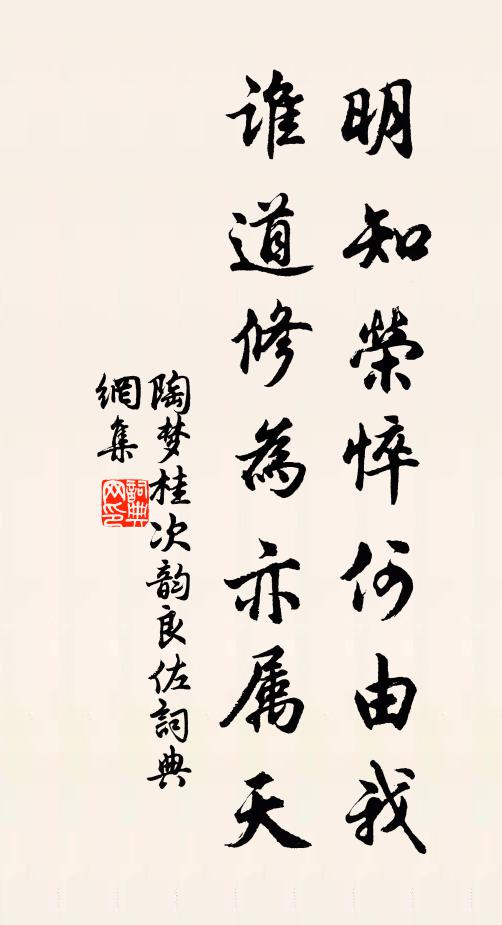 明知榮悴何由我
誰道修為亦属天
陶梦桂次韵良佐詞典
網集
詞典
文印